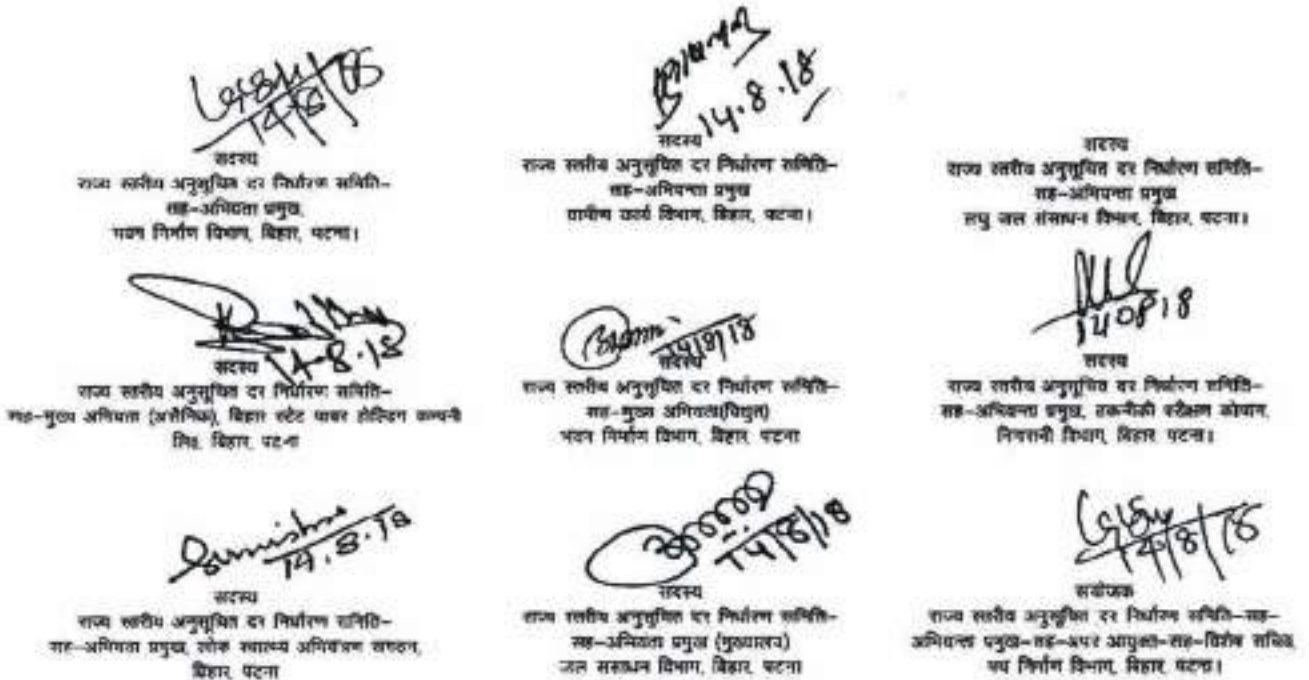 14/8/18
सदस्य
राज्य स्तरीय अनुसूचित दर निर्धारण समिति–
सह–अभियंता प्रमुख,
भवन निर्माण विभाग, बिहार, पटना।
14.8.18
सदस्य
राज्य स्तरीय अनुसूचित दर निर्धारण समिति–
सह–अभियन्ता प्रमुख
ग्रामीण कार्य विभाग, बिहार, पटना।
सदस्य
राज्य स्तरीय अनुसूचित दर निर्धारण समिति–
सह–अभियन्ता प्रमुख
लघु जल संसाधन विभाग, बिहार, पटना।
14-8-18
सदस्य
राज्य स्तरीय अनुसूचित दर निर्धारण समिति–
सह–मुख्य अभियंता (असैनिक), बिहार स्टेट पावर होल्डिंग कम्पनी
लि०, बिहार, पटना
14/8/18
सदस्य
राज्य स्तरीय अनुसूचित दर निर्धारण समिति–
सह–मुख्य अभियंता(विद्युत)
भवन निर्माण विभाग, बिहार, पटना
140818
सदस्य
राज्य स्तरीय अनुसूचित दर निर्धारण समिति–
सह–अभियन्ता प्रमुख, तकनीकी परीक्षण कोषांग,
निगरानी विभाग, बिहार, पटना।
14.8.18
सदस्य
राज्य स्तरीय अनुसूचित दर निर्धारण समिति–
सह–अभियंता प्रमुख, लोक स्वास्थ्य अभियंत्रण संगठन,
बिहार, पटना
14/8/18
सदस्य
राज्य स्तरीय अनुसूचित दर निर्धारण समिति–
सह–अभियंता प्रमुख (मुख्यालय)
जल संसाधन विभाग, बिहार, पटना
14/8/18
संयोजक
राज्य स्तरीय अनुसूचित दर निर्धारण समिति–सह–
अभियन्ता प्रमुख–सह–अपर आयुक्त–सह–विशेष सचिव,
पथ निर्माण विभाग, बिहार, पटना।